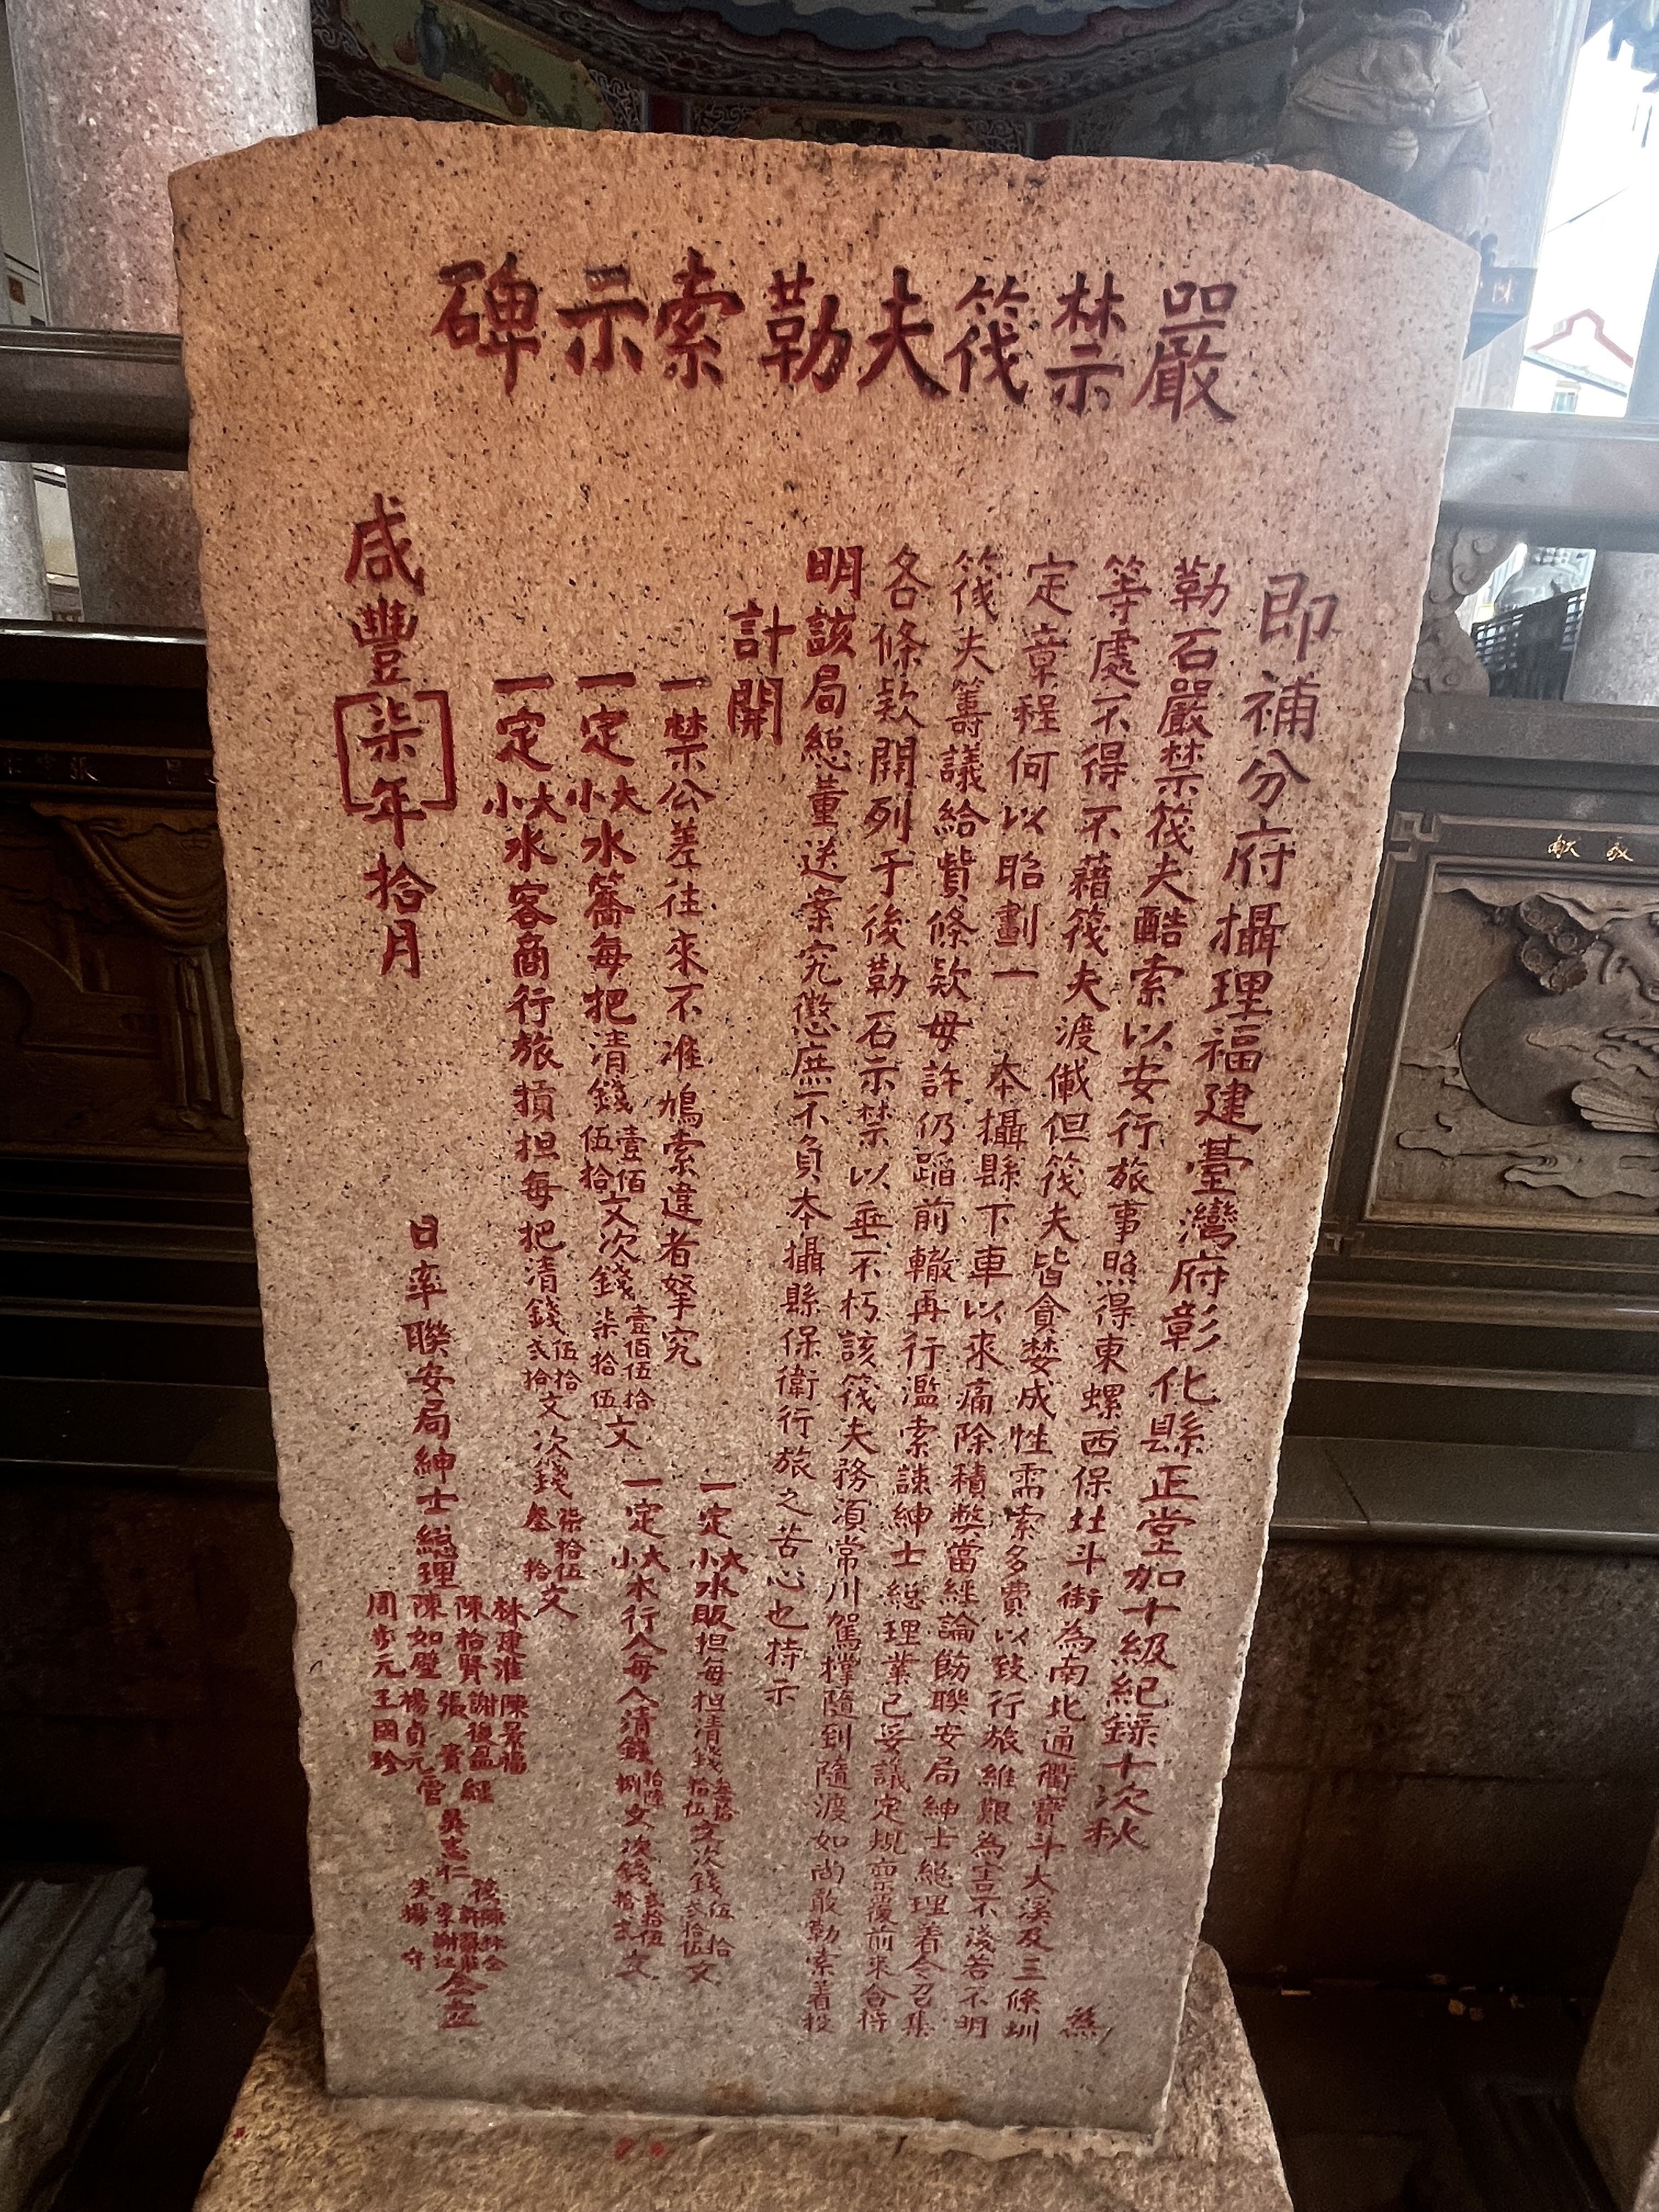 嚴禁筏夫勒索示碑
即補分府攝理福建臺灣府彰化縣正堂加十級紀錄十次秋 為
勒石嚴禁筏夫酷索以安行旅事照得東螺西保北斗街為南北通衢寶斗大溪及三條圳
等處不得不藉筏夫渡儎但筏夫皆貪婪成性需索多費以致行旅維艱為害不淺若不明
定章程何以昭劃一 本攝縣下車以來痛除積弊當經諭飭聯安局紳士總理着令召集
筏夫籌議給貲條欵毋許仍蹈前轍再行濫索諫紳士總理業已妥議定規稟覆前來合將
各條欵開列于後勒石示禁以垂不朽該筏夫務須常川駕撐隨到隨渡如尚敢勒索着投
明該局總董送案究懲庶不負本攝縣保衛行旅之苦心也特示
計開
一禁公差往來不准鳩索違者拏究
一定大小水販担每担清錢叁拾拾伍文次錢伍拾弍拾伍文
一定大小水籌每把清錢壹佰伍拾文次錢壹佰伍拾柒拾伍文
一定大小水行人每人清錢拾陸捌文次錢弍拾伍拾弍文
一定大小水客商行旅損担每把清錢伍拾弍拾文次錢柒拾伍叁拾文
咸豐柒年拾月 日率聯安局紳士總理
林建淮 陳景福
陳拾賢 謝復盈
陳如璧 張 賓
周步元 楊貞元
王國珍
經管 吳志仁
仝立